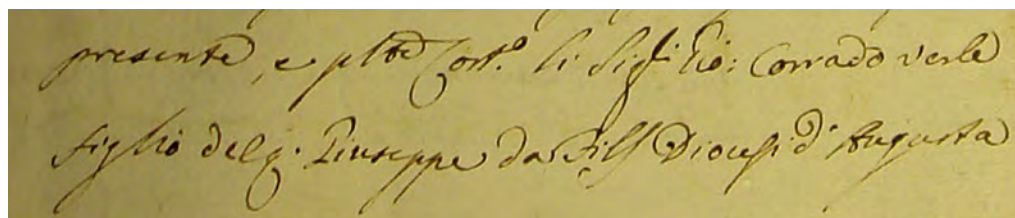 presente, e pltē Cost.º li Sig.ri Gio: Corrado Verle
figlio del q. Giuseppe da Filss Diocesi d'Augusta